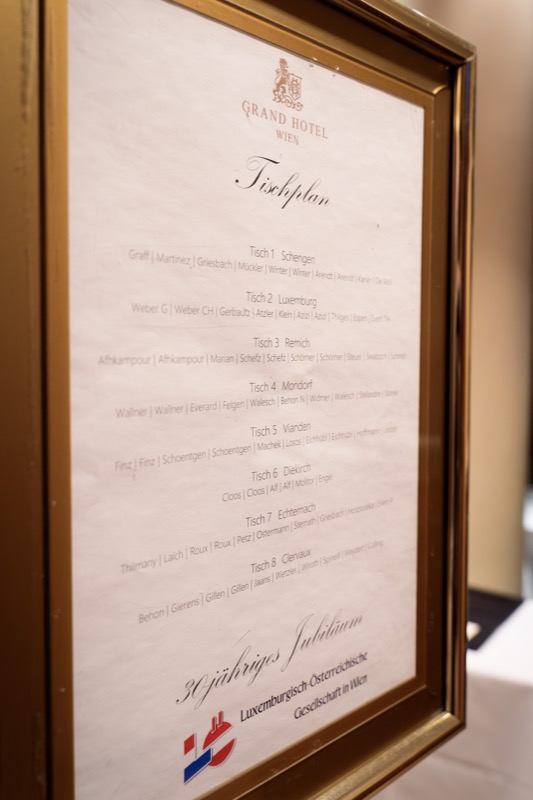 GRAND HOTEL
WIEN
Tischplan
Tisch 1 Schengen
Graff | Martinez | Griesbach | Mückler | Winter | Winter | Arendt | Arendt |
Tisch 2 Luxemburg
Weber G | Weber CH | Gerbaultz | Atzler | Klein | Azizi | Azizi | Thilges |
Tisch 3 Remich
Afhkampour | Afhkampour | Marian | Schefz | Schefz | Schörner | Schörner | Steuer |
Tisch 4 Mondorf
Wallner | Wallner | Everard | Felgen | Walesch | Behon N | Widmer | Walesch |
Tisch 5 Vianden
Finz | Finz | Schoentgen | Schoentgen | Machek | Losos | Eichhübl | Eichhübl | Hoffmann |
Tisch 6 Diekirch
Cloos | Cloos | Alf | Alf | Molitor | Engel
Tisch 7 Echternach
Thilmany | Laich | Roux | Roux | Petz | Ostermann | Sternath | Griesbach |
Tisch 8 Clervaux
Behon | Gierens | Gillen | Gillen | Jaans | Wetzler |
30jähriges Jubiläum
Luxemburgisch-Österreichische
Gesellschaft in Wien